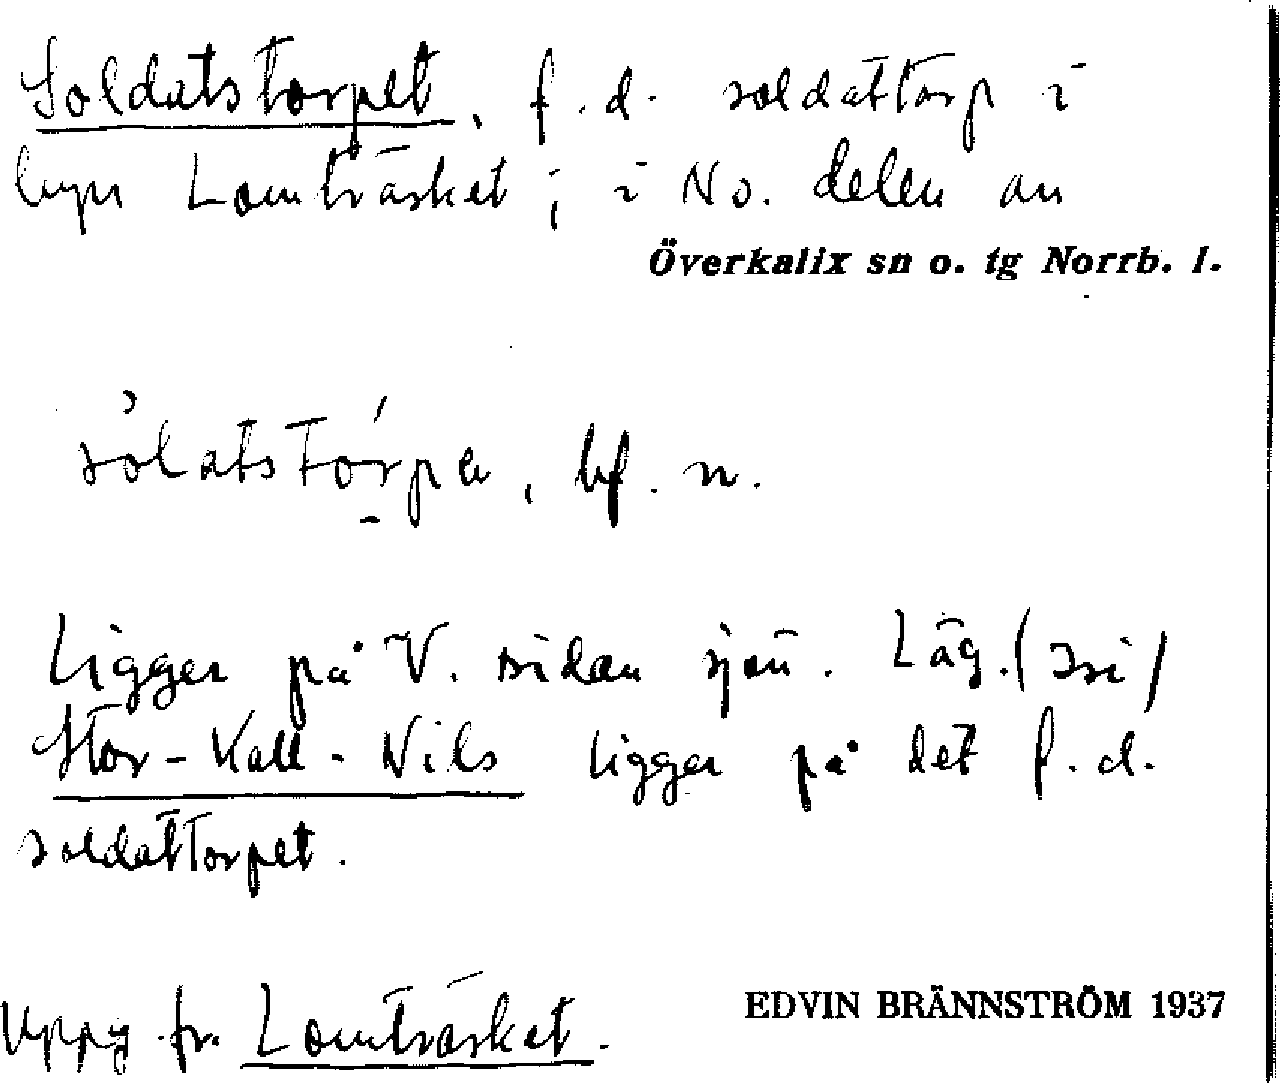 Soldatstorpet, f.d. soldattorp i
byn Lomträsket; i No. delen av
Överkalix sn o. tg Norrb. l.
sòlatstórpa, bf. n.
Ligger på V. sidan sjön. Läg. (sic)
Stor-Kall-Nils ligger på det f.d.
soldattorpet.
Uppg fr. Lomträsket.
EDVIN BRÄNNSTRÖM 1937